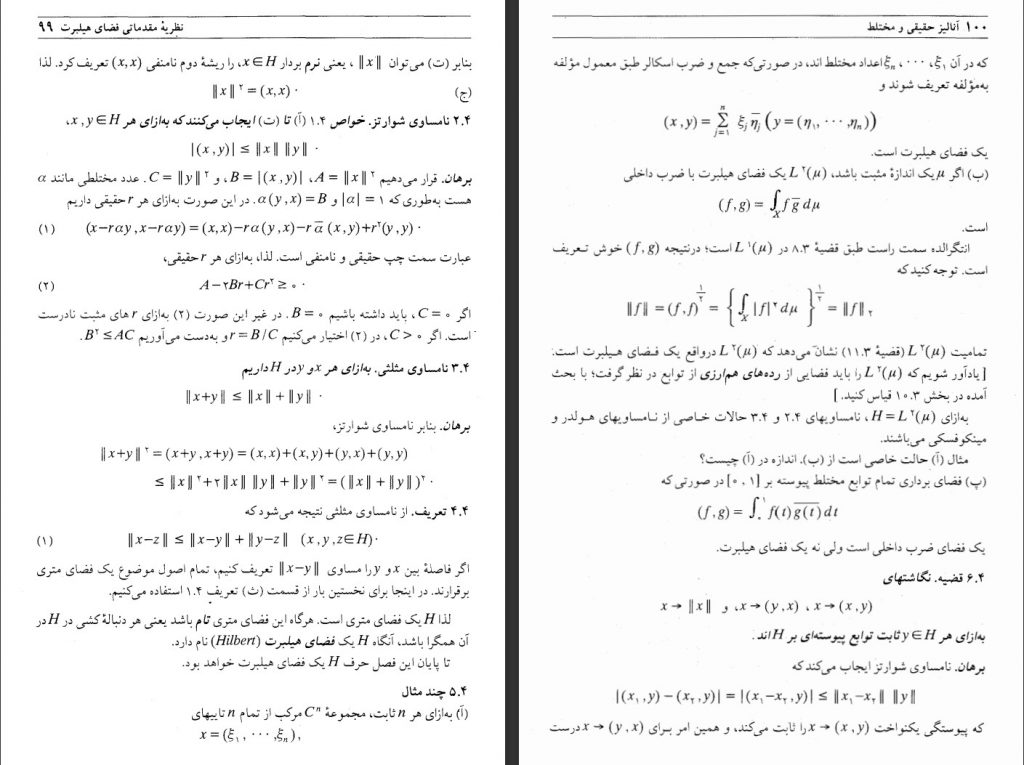 نظریهٔ مقدماتی فضای هیلبرت ۹۹
بنابر (ت) می‌توان ‖x‖، یعنی نرم بردار x∈H، را ریشهٔ دوم نامنفی (x,x) تعریف کرد. لذا
(ج) ‖x‖² = (x,x)·
۲.۴ نامساوی شوارتز. خواص ۱.۴ (آ) تا (ت) ایجاب می‌کنند که به‌ازای هر x, y∈H،
|(x,y)| ≤ ‖x‖ ‖y‖ ·
برهان. قرار می‌دهیم A=‖x‖²، B=|(x,y)|، و C=‖y‖². عدد مختلطی مانند α
هست به‌طوری که |α|=۱ و α(y,x)=B. در این صورت به‌ازای هر r حقیقی داریم
(۱) (x−rαy, x−rαy) = (x,x)−rα(y,x)−rᾱ(x,y)+r²(y,y)·
عبارت سمت چپ حقیقی و نامنفی است. لذا، به‌ازای هر r حقیقی،
(۲) A−۲Br+Cr² ≥ ۰ ·
اگر C=۰، باید داشته باشیم B=۰. در غیر این صورت (۲) به‌ازای r های مثبت نادرست
است. اگر C>۰، در (۲) اختیار می‌کنیم r=B/C و به‌دست می‌آوریم B²≤AC.
۳.۴ نامساوی مثلثی. به‌ازای هر x و y در H داریم
‖x+y‖ ≤ ‖x‖+‖y‖ ·
برهان. بنابر نامساوی شوارتز،
‖x+y‖² = (x+y,x+y) = (x,x)+(x,y)+(y,x)+(y,y)
≤ ‖x‖²+۲‖x‖ ‖y‖+‖y‖² = (‖x‖+‖y‖)²·
۴.۴ تعریف. از نامساوی مثلثی نتیجه می‌شود که
(۱) ‖x−z‖ ≤ ‖x−y‖+‖y−z‖ (x,y,z∈H)·
اگر فاصلهٔ بین x و y را مساوی ‖x−y‖ تعریف کنیم، تمام اصول موضوع یک فضای متری
برقرارند. در اینجا برای نخستین بار از قسمت (ث) تعریف ۱.۴ استفاده می‌کنیم.
لذا H یک فضای متری است. هرگاه این فضای متری تام باشد یعنی هر دنبالهٔ کشی در H در
آن همگرا باشد، آنگاه H یک فضای هیلبرت (Hilbert) نام دارد.
تا پایان این فصل حرف H یک فضای هیلبرت خواهد بود.
۵.۴ چند مثال
(آ) به‌ازای هر n ثابت، مجموعهٔ Cⁿ مرکب از تمام n تاییهای
x = (ξ₁, ···, ξₙ),
۱۰۰ آنالیز حقیقی و مختلط
که در آن ξ₁، ···، ξₙ اعداد مختلط اند، در صورتی‌که جمع و ضرب اسکالر طبق معمول مؤلفه
به‌مؤلفه تعریف شوند و
(x,y) = Σⁿⱼ₌₁ ξⱼ η̄ⱼ (y=(η₁, ···, ηₙ))
یک فضای هیلبرت است.
(ب) اگر μ یک اندازهٔ مثبت باشد، L²(μ) یک فضای هیلبرت با ضرب داخلی
(f,g) = ∫_X f ḡ dμ
است.
انتگرالدهٔ سمت راست طبق قضیهٔ ۸.۳ در L¹(μ) است؛ درنتیجه (f,g) خوش تعریف
است. توجه کنید که
‖f‖ = (f,f)^{۱/۲} = {∫_X |f|² dμ}^{۱/۲} = ‖f‖₂
تمامیت L²(μ) (قضیهٔ ۱۱.۳) نشان می‌دهد که L²(μ) درواقع یک فضای هیلبرت است:
[یادآور شویم که L²(μ) را باید فضایی از رده‌های هم‌ارزی از توابع در نظر گرفت؛ با بحث
آمده در بخش ۱۰.۳ قیاس کنید.]
به‌ازای H=L²(μ)، نامساویهای ۲.۴ و ۳.۴ حالات خاصی از نامساویهای هولدر و
مینکوفسکی می‌باشند.
مثال (آ) حالت خاصی است از (ب). اندازه در (آ) چیست؟
(پ) فضای برداری تمام توابع مختلط پیوسته بر [۰,۱] در صورتی که
(f,g) = ∫₀¹ f(t) g(t)̅ dt
یک فضای ضرب داخلی است ولی نه یک فضای هیلبرت.
۶.۴ قضیه. نگاشتهای
x → (x,y)، x → (y,x)، و x → ‖x‖
به‌ازای هر y∈H ثابت توابع پیوسته‌ای بر H اند.
برهان. نامساوی شوارتز ایجاب می‌کند که
|(x₁,y) − (x₂,y)| = |(x₁−x₂,y)| ≤ ‖x₁−x₂‖ ‖y‖
که پیوستگی یکنواخت x → (x,y) را ثابت می‌کند، و همین امر برای x → (y,x) درست